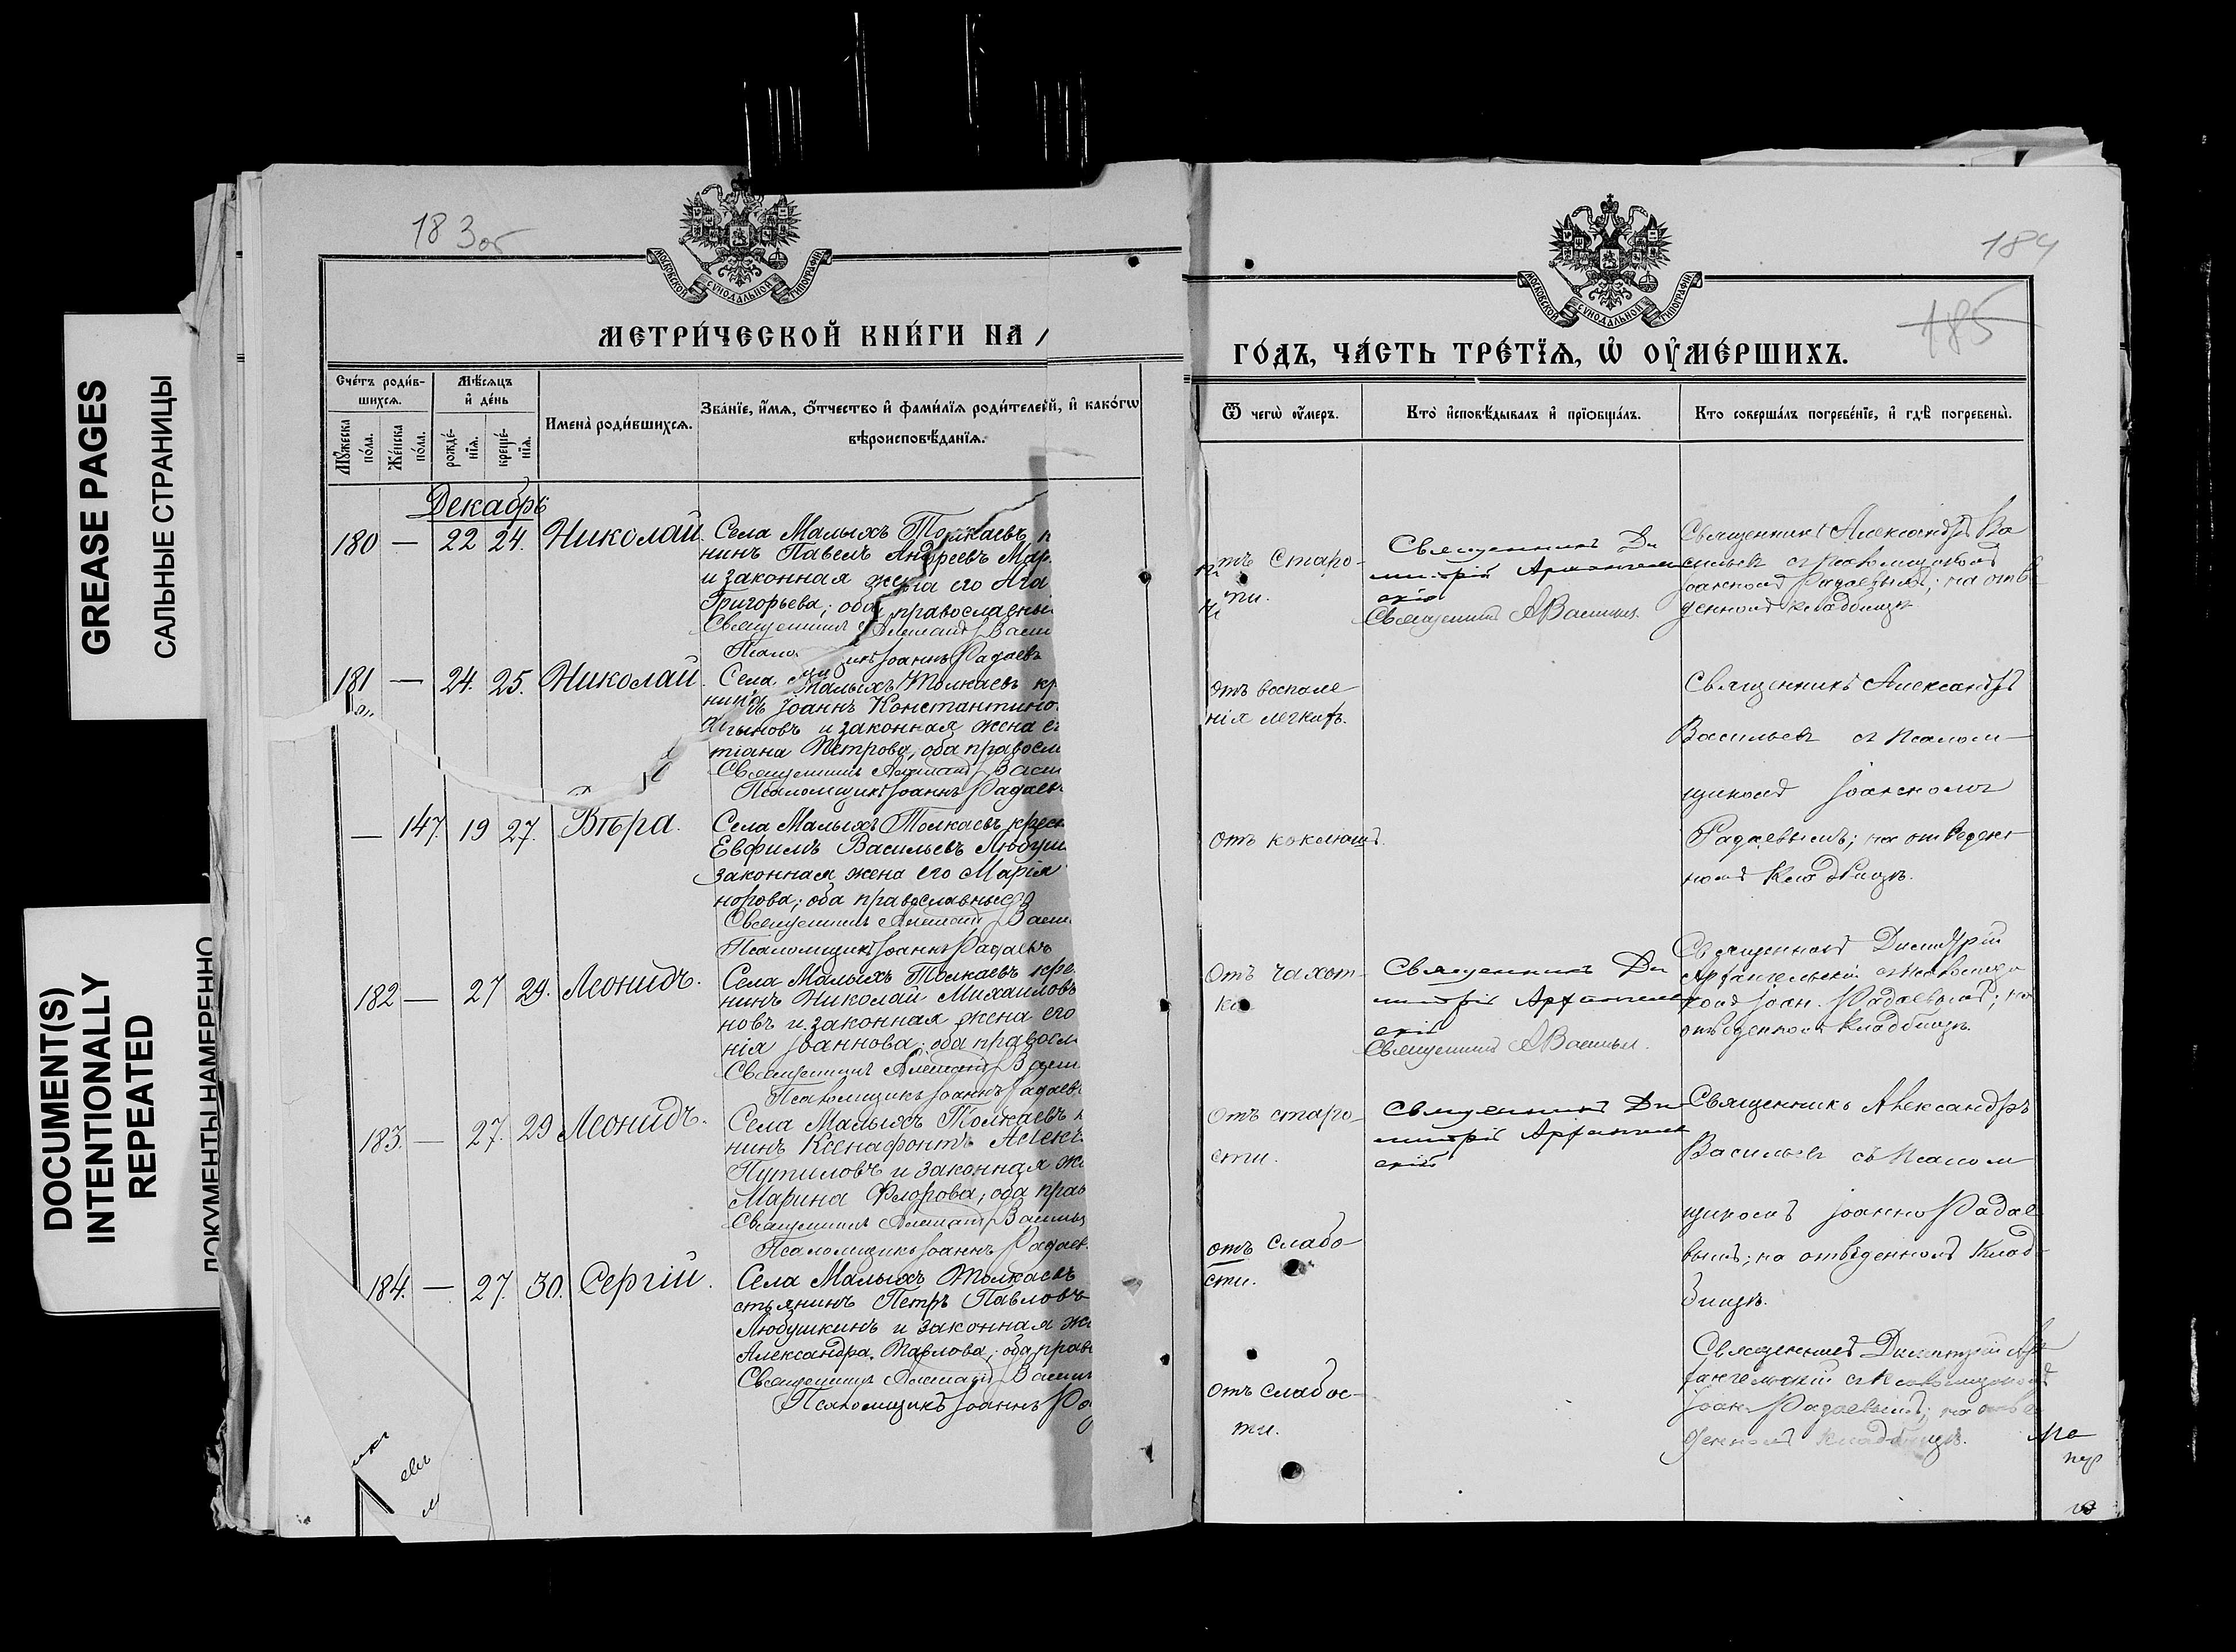 GREASE PAGES
САЛЬНЫЕ СТРАНИЦЫ
DOCUMENT(S)
INTENTIONALLY
REPEATED
ДОКУМЕНТЫ НАМЕРЕННО
183об
МОСКОВСКОЙ СѴНОДАЛЬНОЙ ТИПОГРАФІИ
МЕТРИ́ЧЕСКОЙ КНИ́ГИ НА
Сче́тъ роди́в-
шихся.
Мѣ́сяцъ
и҆ де́нь
Му́жеска
по́ла.
Же́нска
по́ла.
рожде́-
нїя.
креще́-
нїя.
Имена̀ роди́вшихся.
Зва́нїе, и҆́мя, ѻ҆́тчество и҆ фами́лїя роди́телей, и҆ како́гѡ
вѣроисповѣ́данїя.
Декабрь
180 — 22 24. Николай.
Села Малыхъ Толкаевъ к
нинъ Павелъ Андреевъ Мар
и законная жена его Ага
Григорьева; оба православны
Священникъ Александръ Васи
Псало щикъ Іоаннъ Радаевъ
181 — 24. 25. Николай
Села Малыхъ Толкаевъ кр
нинъ Іоаннъ Константино
и законная жена е
тіана Петрова, оба правосл
Священникъ Александръ Васи
Псаломщикъ Іоаннъ Радаевъ
— 147. 19 27. Вѣра.
Села Малыхъ Толкаевъ крес
Евфимъ Васильевъ Любуш
законная жена его Марія
норова; оба православные
Священникъ Александръ Васи
Псаломщикъ Іоаннъ Радаевъ
182 — 27 29. Леонидъ.
Села Малыхъ Толкаевъ кре
нинъ Николай Михаиловъ
новъ и законная жена его
нія Іоаннова; оба правосл
Священникъ Александръ Васи
Псаломщикъ Іоаннъ Радаев
183. — 27. 29 Леонидъ.
Села Малыхъ Толкаевъ к
нинъ Ксенафонтъ Алек
Путиловъ и законная же
Марина Флорова; оба прав
Священникъ Александръ Василь
Псаломщикъ Іоаннъ Радаев
184. — 27. 30. Сергій.
Села Малыхъ Толкаевъ
стьянинъ Петръ Павловъ
Любушкинъ и законная же
Александра Карлова; оба прав
Священникъ Александръ Васи
Псаломщикъ Іоаннъ Ра
184
185
МОСКОВСКОЙ СѴНОДАЛЬНОЙ ТИПОГРАФІИ
ГО́ДЪ, ЧА́СТЬ ТРЕ́ТЇЯ, Ѡ҆ ОУ҆МЕ́РШИХЪ.
Ѿ чегѡ̀ ѹ҆́меръ.
Кто̀ и҆сповѣ́дывалъ и҆ прїѡбща́лъ.
Кто соверша́лъ погребе́нїе, и҆ гдѣ̀ погребены̀.
тъ старо-
ти.
Священникъ Ди
митрій Архангель
скій
Священникъ А Васильев.
Священникъ Александръ Ва
сильевъ съ псаломщикомъ
Іоанномъ Радаевымъ; на отве
денномъ кладбищѣ
отъ воспале
нія легкихъ.
Священникъ Александръ
Васильевъ съ псалом—
щикомъ Іоанномъ
Радаевымъ; на отведен
номъ кладбищѣ.
отъ коклюша.
отъ чахот-
ки
Священникъ Ди
митрій Архангель
скій
Священникъ А Васильев.
Священникъ Димитрій
Архангельскій съ псаломщи
комъ Іоан. Радаевымъ; на
отведенномъ кладбищѣ.
отъ старо-
сти.
Священникъ Ди
митрій Архангель
скій
Священникъ Александръ
Васильевъ съ псалом
щикомъ Іоанно Радае
вымъ; на отведенномъ клад-
бищѣ.
отъ слабо-
сти.
отъ слабос-
ти.
Священникъ Димитрій Ар
хангельскій съ псаломщикомъ
Іоан. Радаевымъ; на отве
денномъ кладбищѣ.